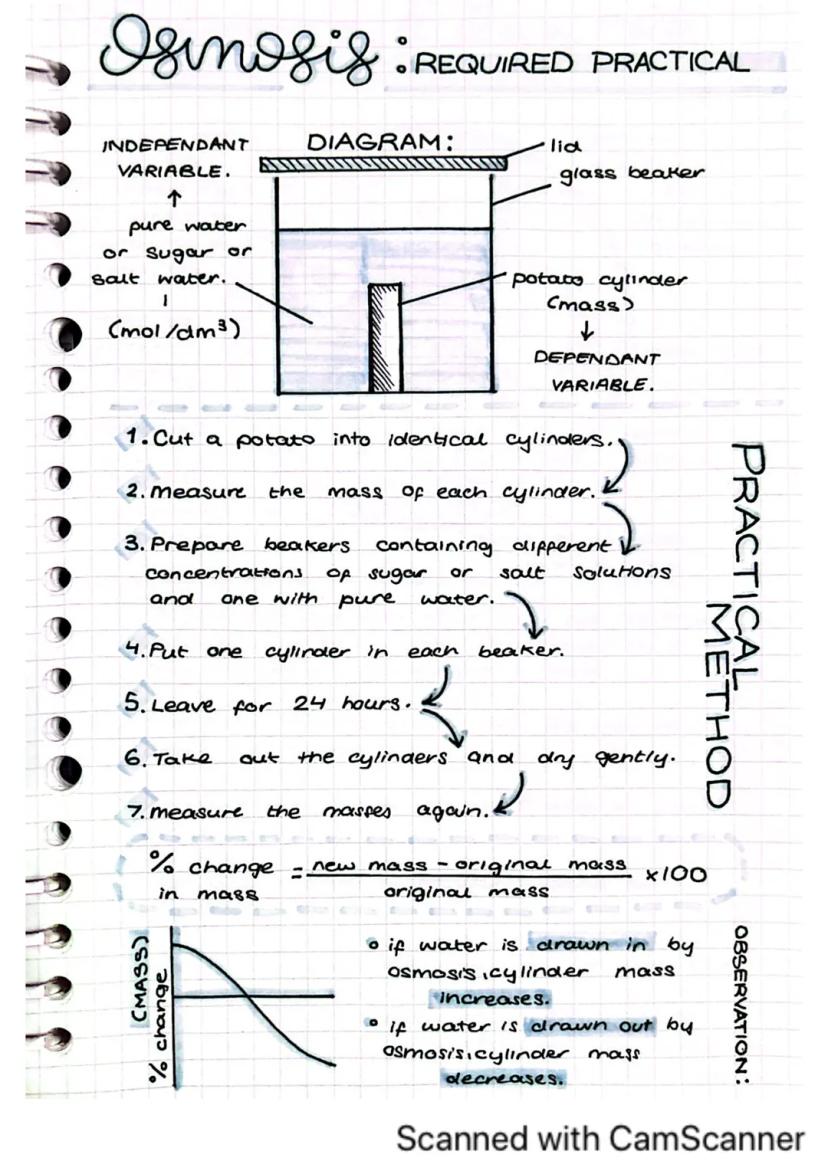 Osmosis: REQUIRED PRACTICAL
INDEPENDANT
VARIABLE.
pure water
or sugar or
salt water.
(mol/dm³)
DIAGRAM:
lid
glass beaker
potato cylinder
(mass)
DEPENDANT
VARIABLE.
1. Cut a potato into identical cylinders.
2. measure the mass of each cylinder.
3. Prepare beakers containing different
concentrations of sugar or salt solutions
and one with pure water.
4. Put one cylinder in each beaker.
5. Leave for 24 hours.
6. Take out the cylinders and dry gently.
7. measure the masses again.
PRACTICAL
METHOD
% change = new mass - original mass x100
in mass original mass
(MASS)
% change
• if water is drawn in by
osmosis, cylinder mass
increases.
• if water is drawn out by
osmosis, cylinder mass
decreases.
OBSERVATION:
Scanned with CamScanner